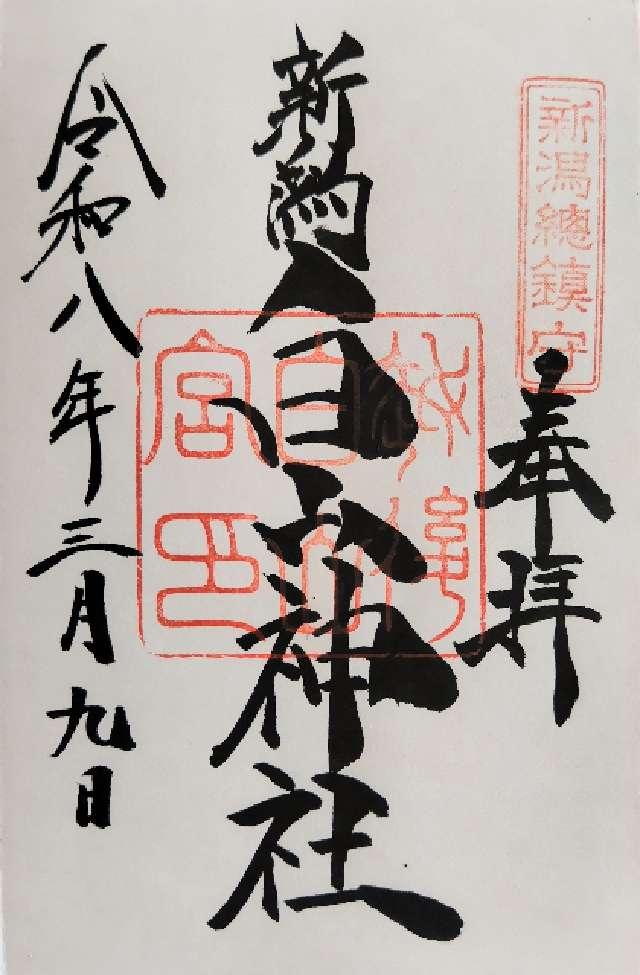 新潟總鎮守
奉拝
新潟白山神社
白山
宮印
令和八年三月九日